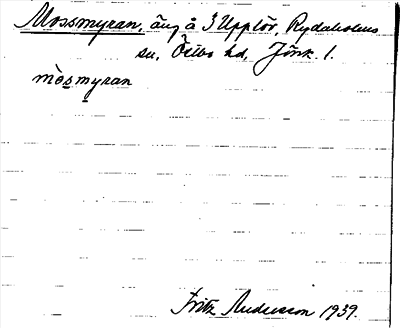 Mossmyran, äng å 3 Upplöv, Rydaholms
sn, Östbo hd, Jönk. l.
mòsmyran
Fritz Andersson 1939.